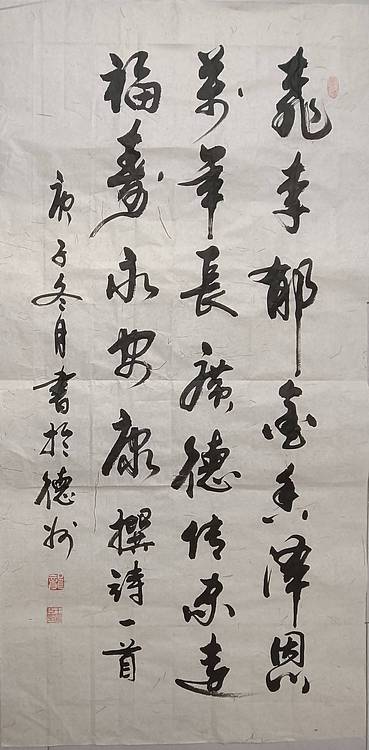 桃李郁金香澤恩
萬年長廣德傳家遠
福壽永安康撰詩一首
庚子冬月書於德州